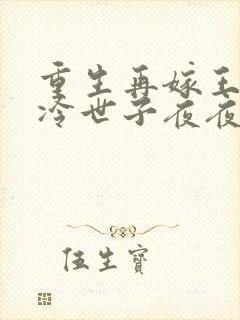 重生再嫁王
冷世子夜夜
伍生宝